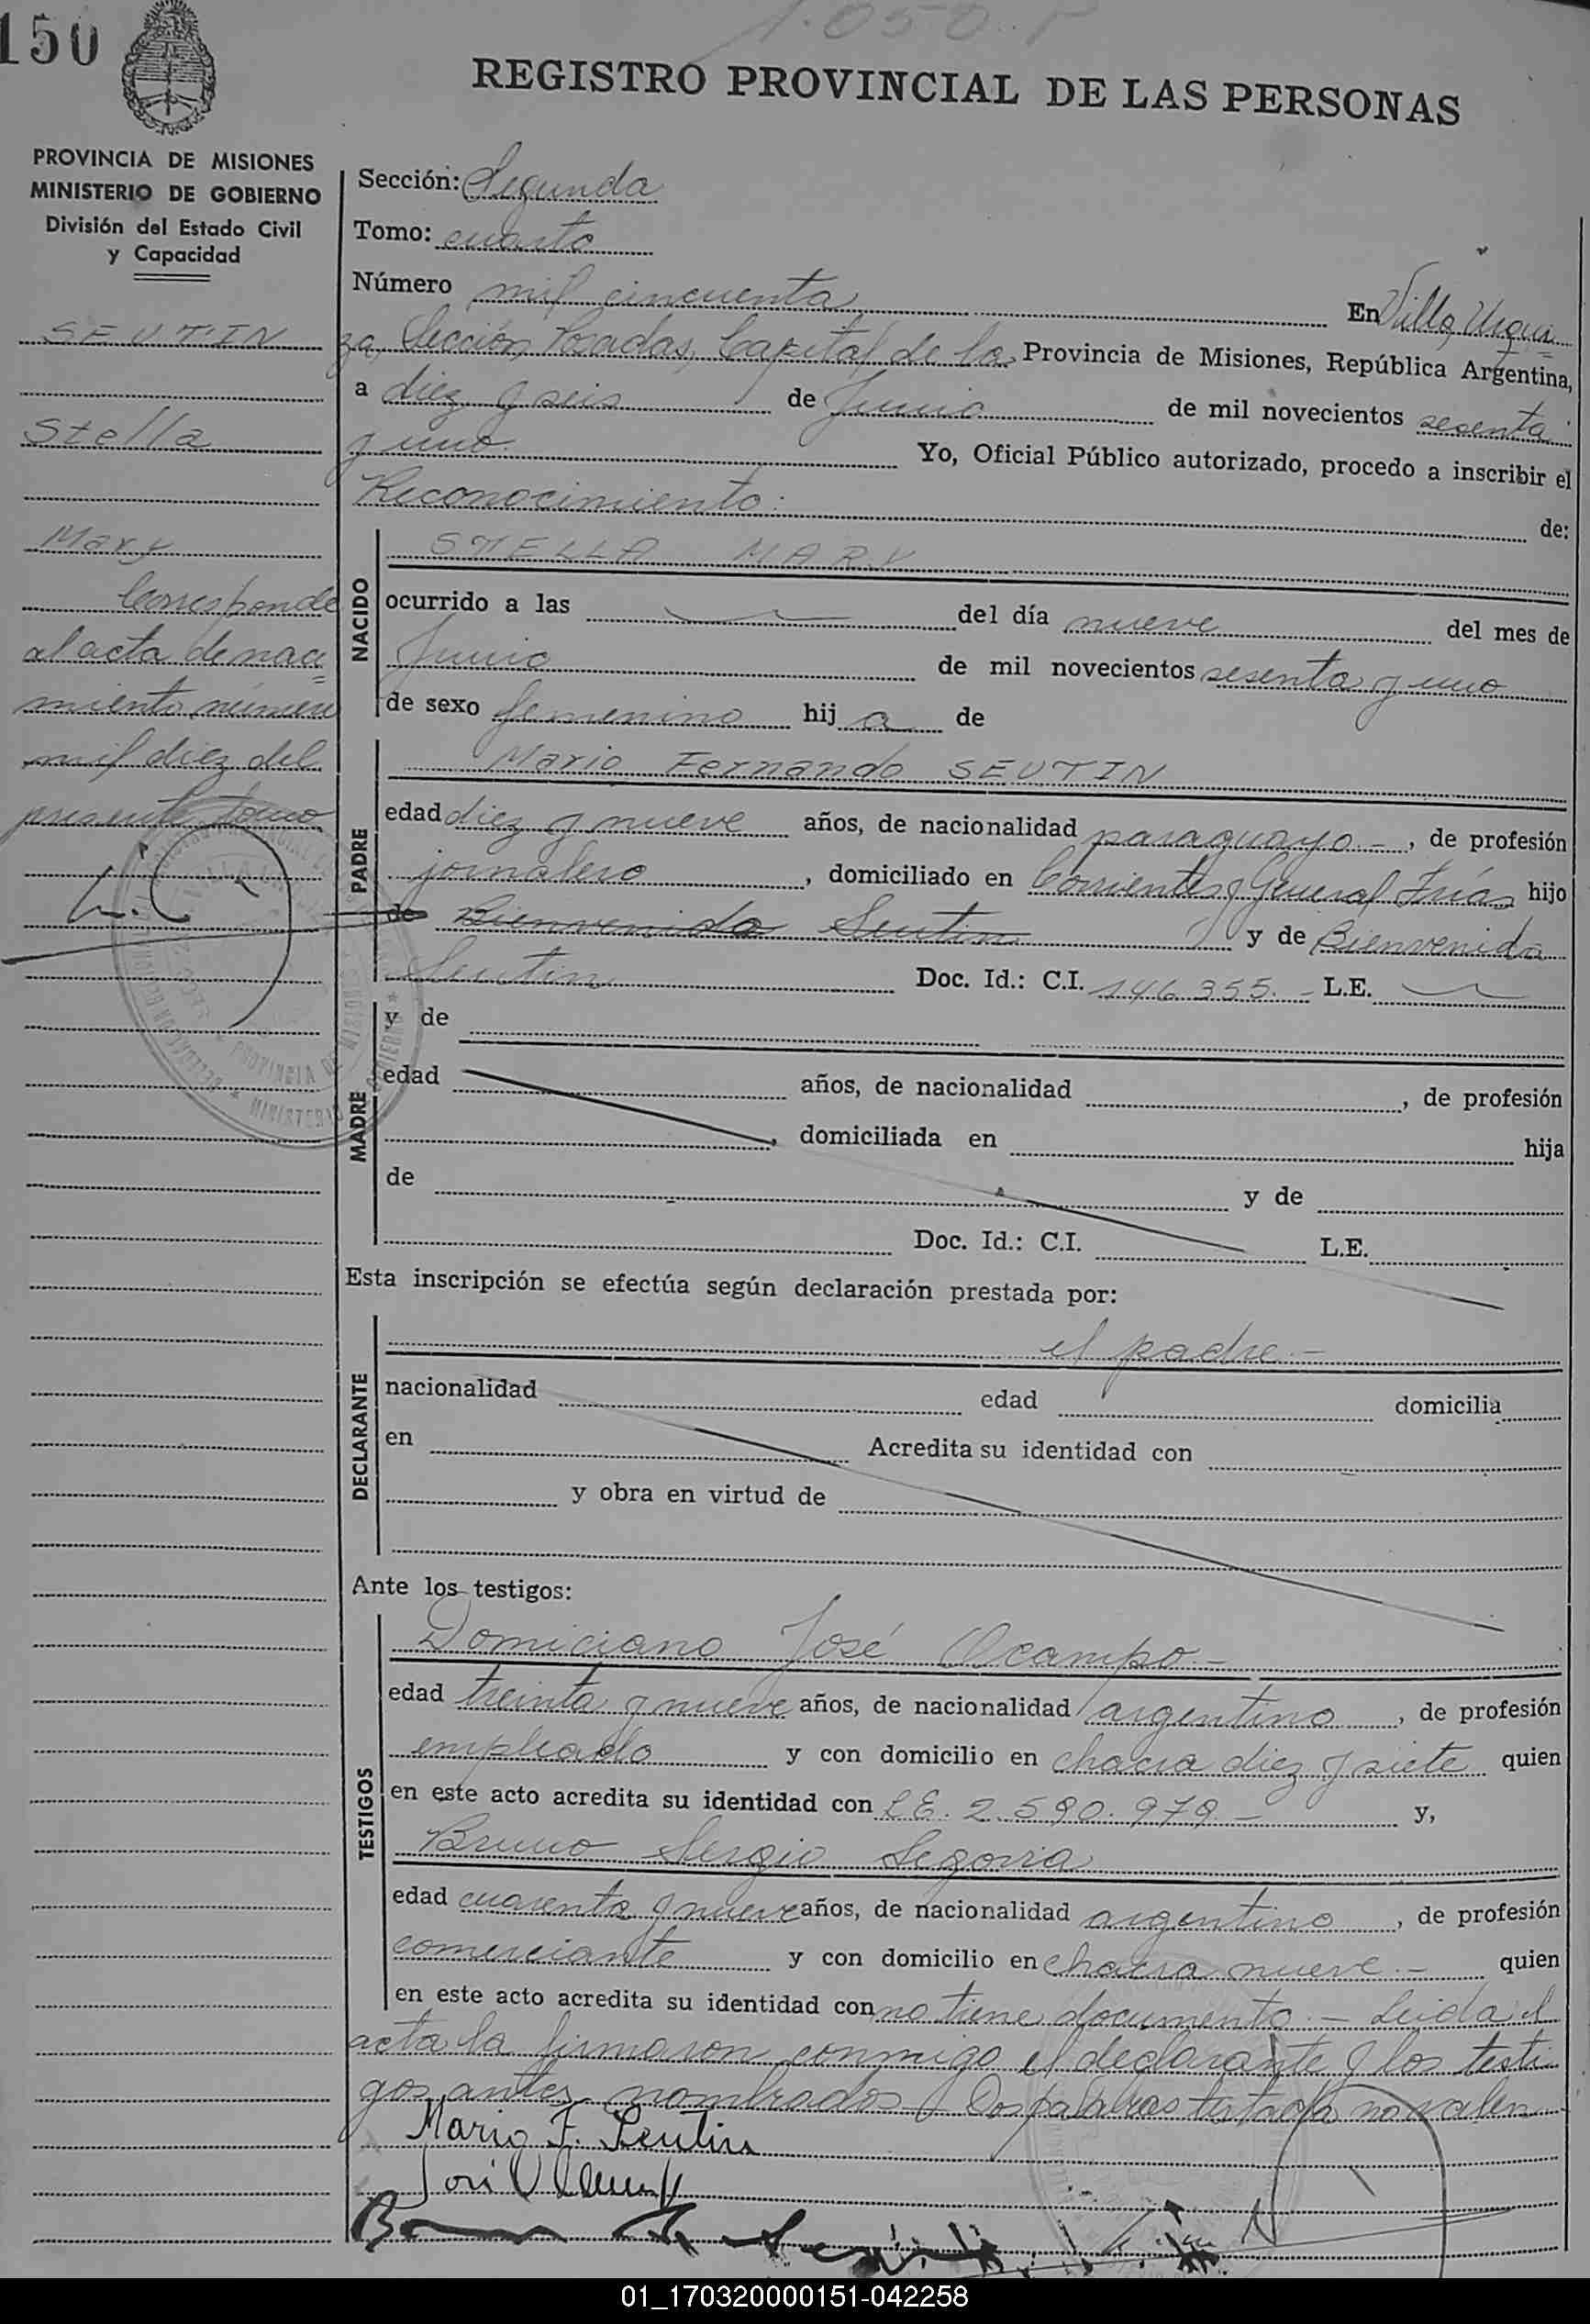 150
1.050. F
REGISTRO PROVINCIAL DE LAS PERSONAS
PROVINCIA DE MISIONES
MINISTERIO DE GOBIERNO
División del Estado Civil
y Capacidad
SEUTIN
Stella
Mary
Corresponde
al acta de naci=
miento número
mil diez del
presente tomo
Sección: Segunda
Tomo: cuarto
Número mil cincuenta En Villa Urqui=
za, Sección Posadas, Capital de la Provincia de Misiones, República Argentina,
a diez y seis de Junio de mil novecientos sesenta
y uno. Yo, Oficial Público autorizado, procedo a inscribir el
Reconocimiento: de:
NACIDO
STELLA MARY
ocurrido a las del día nueve del mes de
Junio de mil novecientos sesenta y uno
de sexo femenino hij a de
PADRE
Mario Fernando SEUTIN
edad diez y nueve años, de nacionalidad paraguayo.-, de profesión
jornalero, domiciliado en Corrientes y General Frías hijo
de Bienvenida Seutin y de Bienvenida
Seutin Doc. Id.: C.I. 146.355.- L.E.
MADRE
y de
edad años, de nacionalidad , de profesión
, domiciliada en hija
de y de
Doc. Id.: C.I. L.E.
Esta inscripción se efectúa según declaración prestada por:
DECLARANTE
el padre.-
nacionalidad edad domicilia
en Acredita su identidad con
y obra en virtud de
Ante los testigos:
TESTIGOS
Domiciano José Ocampo.-
edad treinta y nueve años, de nacionalidad argentino, de profesión
empleado y con domicilio en chacra diez y siete quien
en este acto acredita su identidad con LE. 2.590.979.- y,
Bruno Sergio Segovia
edad cuarenta y nueve años, de nacionalidad argentino, de profesión
comerciante y con domicilio en chacra nueve.- quien
en este acto acredita su identidad con no tiene documento.- Leida el
acta la firmaron conmigo el declarante y los testi
gos antes nombrados Dos palabras testada no valen
Mario F. Seutin
01_170320000151-042258